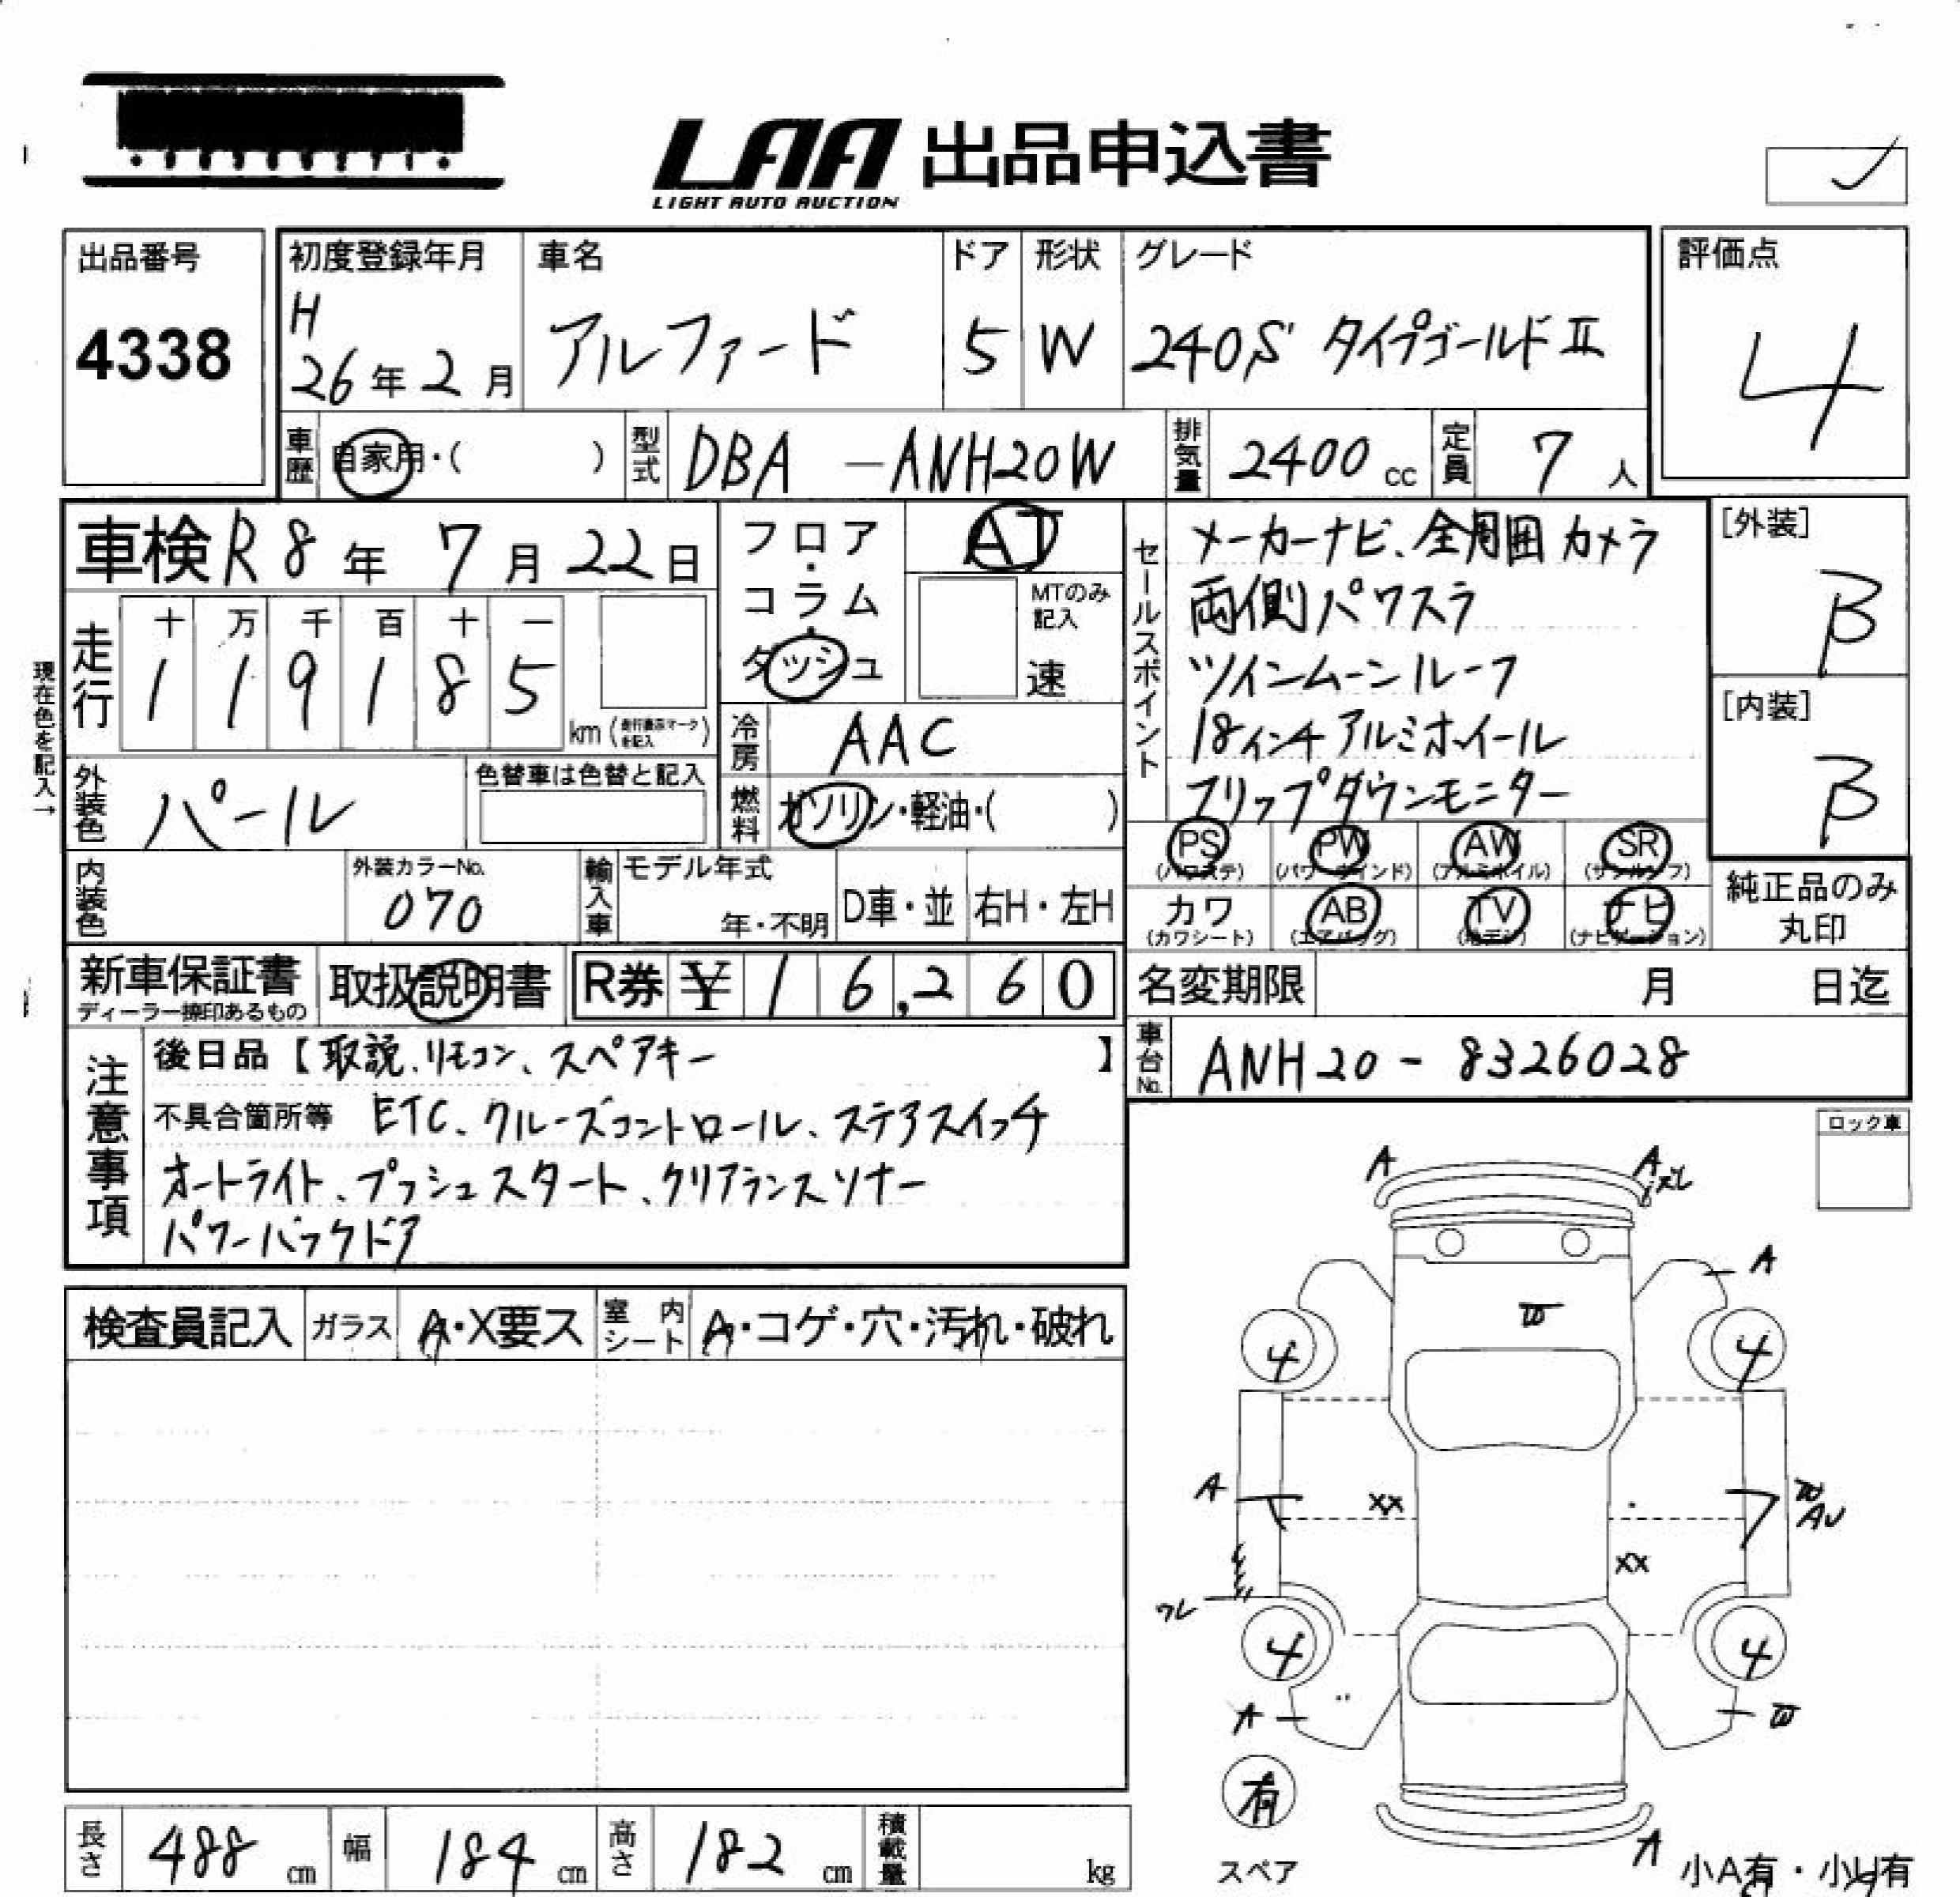 LAA 出品申込書
LIGHT AUTO AUCTION
出品番号
4338
初度登録年月
H
26年2月
車名
アルファード
ドア
5
形状
W
グレード
240S タイプゴールドⅡ
評価点
4
車歴 自家用・( )
型式 DBA-ANH20W
排気量 2400 cc
定員 7 人
車検 R8年7月22日
フロア・コラム・ダッシュ
AT
MTのみ記入
速
セールスポイント
メーカーナビ、全周囲カメラ
両側パワスラ
ツインムーンルーフ
18インチアルミホイール
フリップダウンモニター
[外装]
B
[内装]
B
現在色を記入→
走行
十 万 千 百 十 一
1 1 9 1 8 5 km (走行表示マークを記入)
冷房 AAC
燃料 ガソリン・軽油・( )
外装色 パール
色替車は色替と記入
PS (パワステ) PW (パワーウインド) AW (アルミホイル) SR (サンルーフ)
カワ (カワシート) AB (エアバッグ) TV (地デジ) ナビ (ナビゲーション)
純正品のみ
丸印
内装色
外装カラーNo.
070
輸入車
モデル年式
年・不明
D車・並
右H・左H
新車保証書
ディーラー捺印あるもの
取扱説明書
R券 ¥ 16,260
名変期限 月 日迄
車台No. ANH20-8326028
注意事項
後日品【取説、リモコン、スペアキー】
不具合箇所等 ETC、クルーズコントロール、ステアスイッチ
オートライト、プッシュスタート、クリアランスソナー
パワーバックドア
ロック車
検査員記入
ガラス A・X要ス
室内シート A・コゲ・穴・汚れ・破れ
A
A
A
4
4
A
XX
XX
4
4
A
有
スペア
A
小A有・小U有
長さ 488 cm
幅 184 cm
高さ 182 cm
積載量 kg